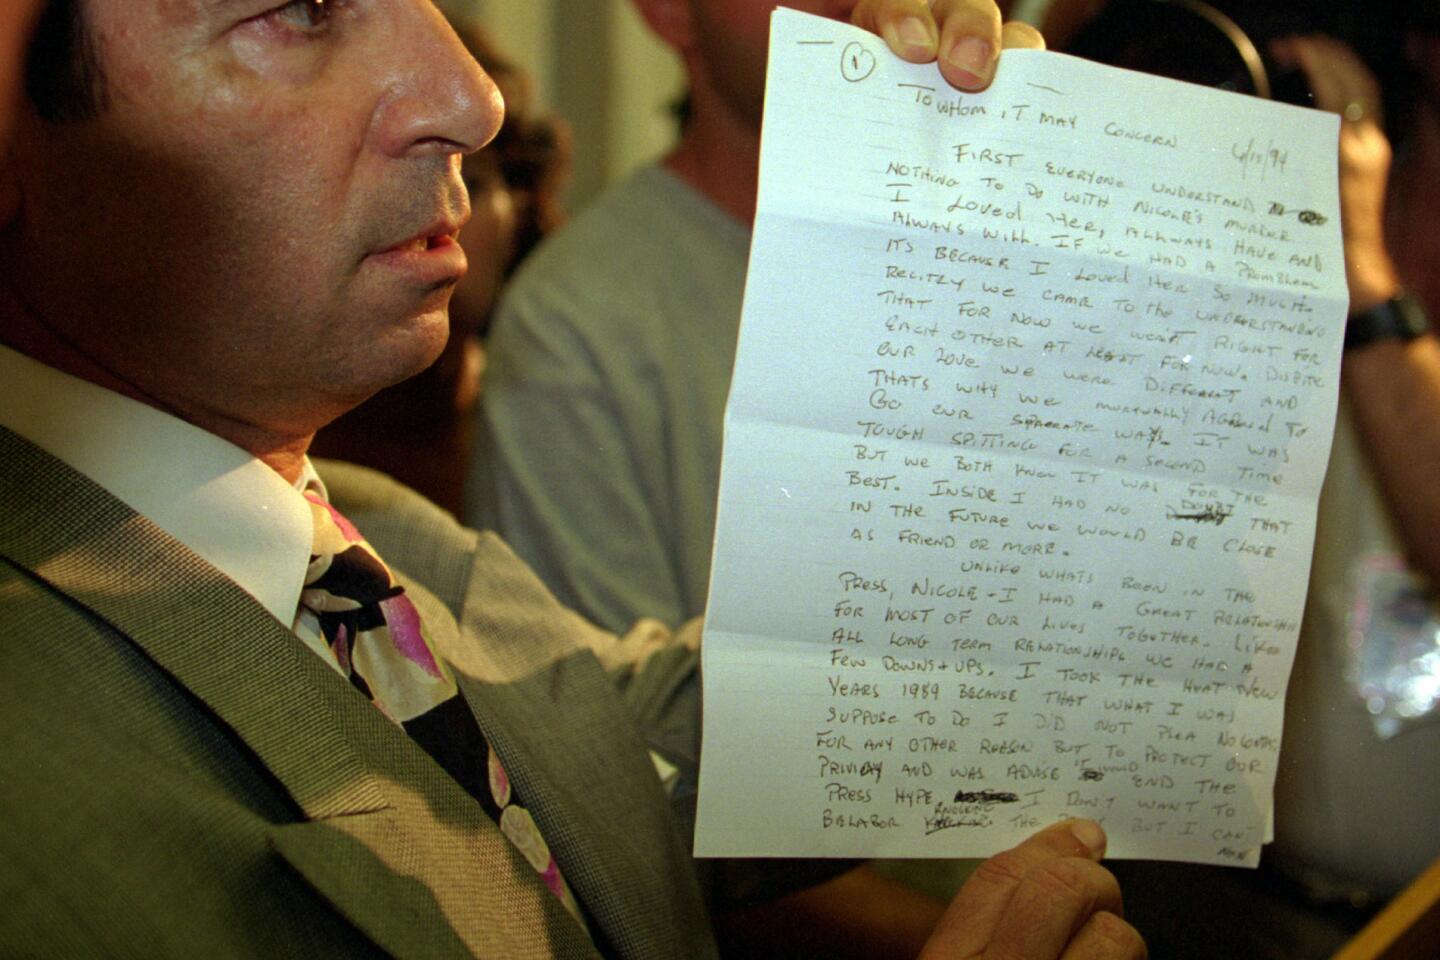 1
To whom it may concern 6/15/94
First everyone understand
nothing to do with Nicole's murder
I loved her, allways have and
always will. If we had a promblem
its because I loved her so much.
Recitly we came to the understanding
that for now we wer'nt right for
each other at least for now. Dispite
our love we were different and
thats why we murtually agreed to
go our spaerate ways. It was
tough spitting for a second time
but we both knew it was for the
best. Inside I had no doubt that
in the future we would be close
as friend or more.
Unlike whats been in the
press, Nicole + I had a great relationship
for most of our lives together. Like
all long term relationships we had a
few downs + ups. I took the heat New
Years 1989 because that what I was
suppose to do I did not plea no contest
for any other reason but to protect our
privicy and was advise it would end the
press hype I don't want to
belabor knocking the but I can't